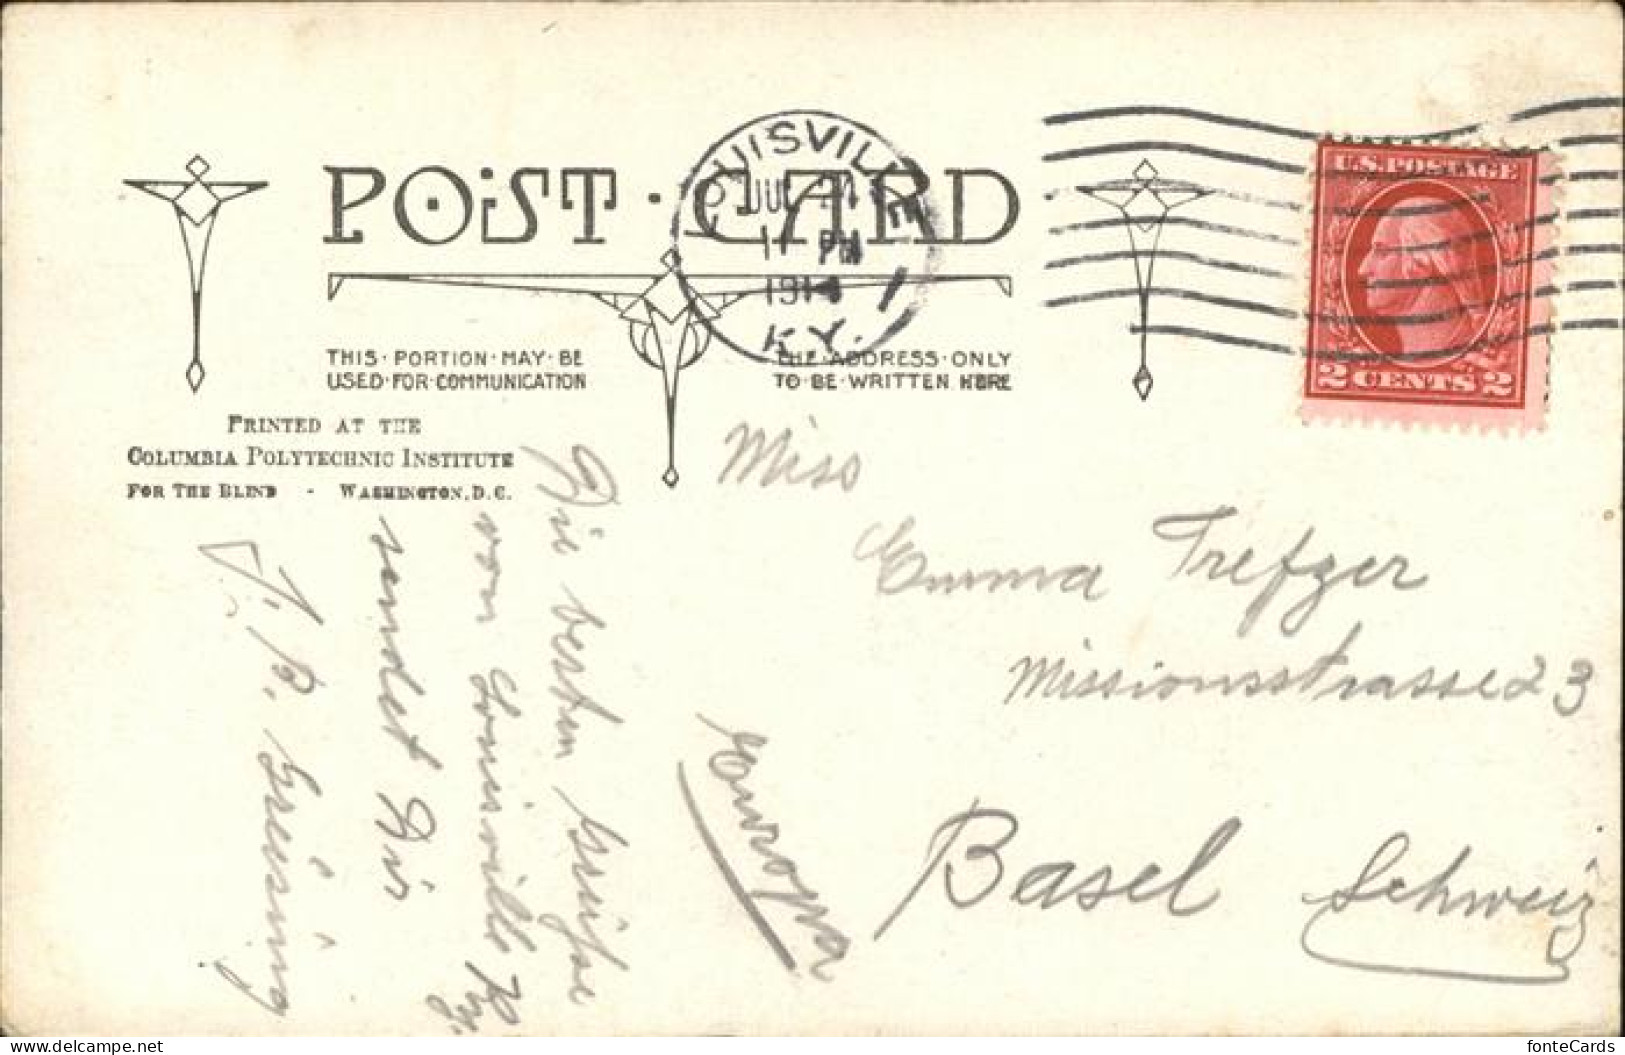 POST · CARD
LOUISVILLE
JUL
11 PM
1914
KY.
1
U.S. POSTAGE
2 CENTS 2
THIS · PORTION · MAY · BE
USED · FOR · COMMUNICATION
THE · ADDRESS · ONLY
TO · BE · WRITTEN HERE
PRINTED AT THE
COLUMBIA POLYTECHNIC INSTITUTE
FOR THE BLIND - WASHINGTON, D.C.
Die besten Grüsse
von Louisville Ky.
sendet Dir
Miss
Emma Trefzer
Missionsstrasse 23
Basel Schweiz
Europa
fonteCards